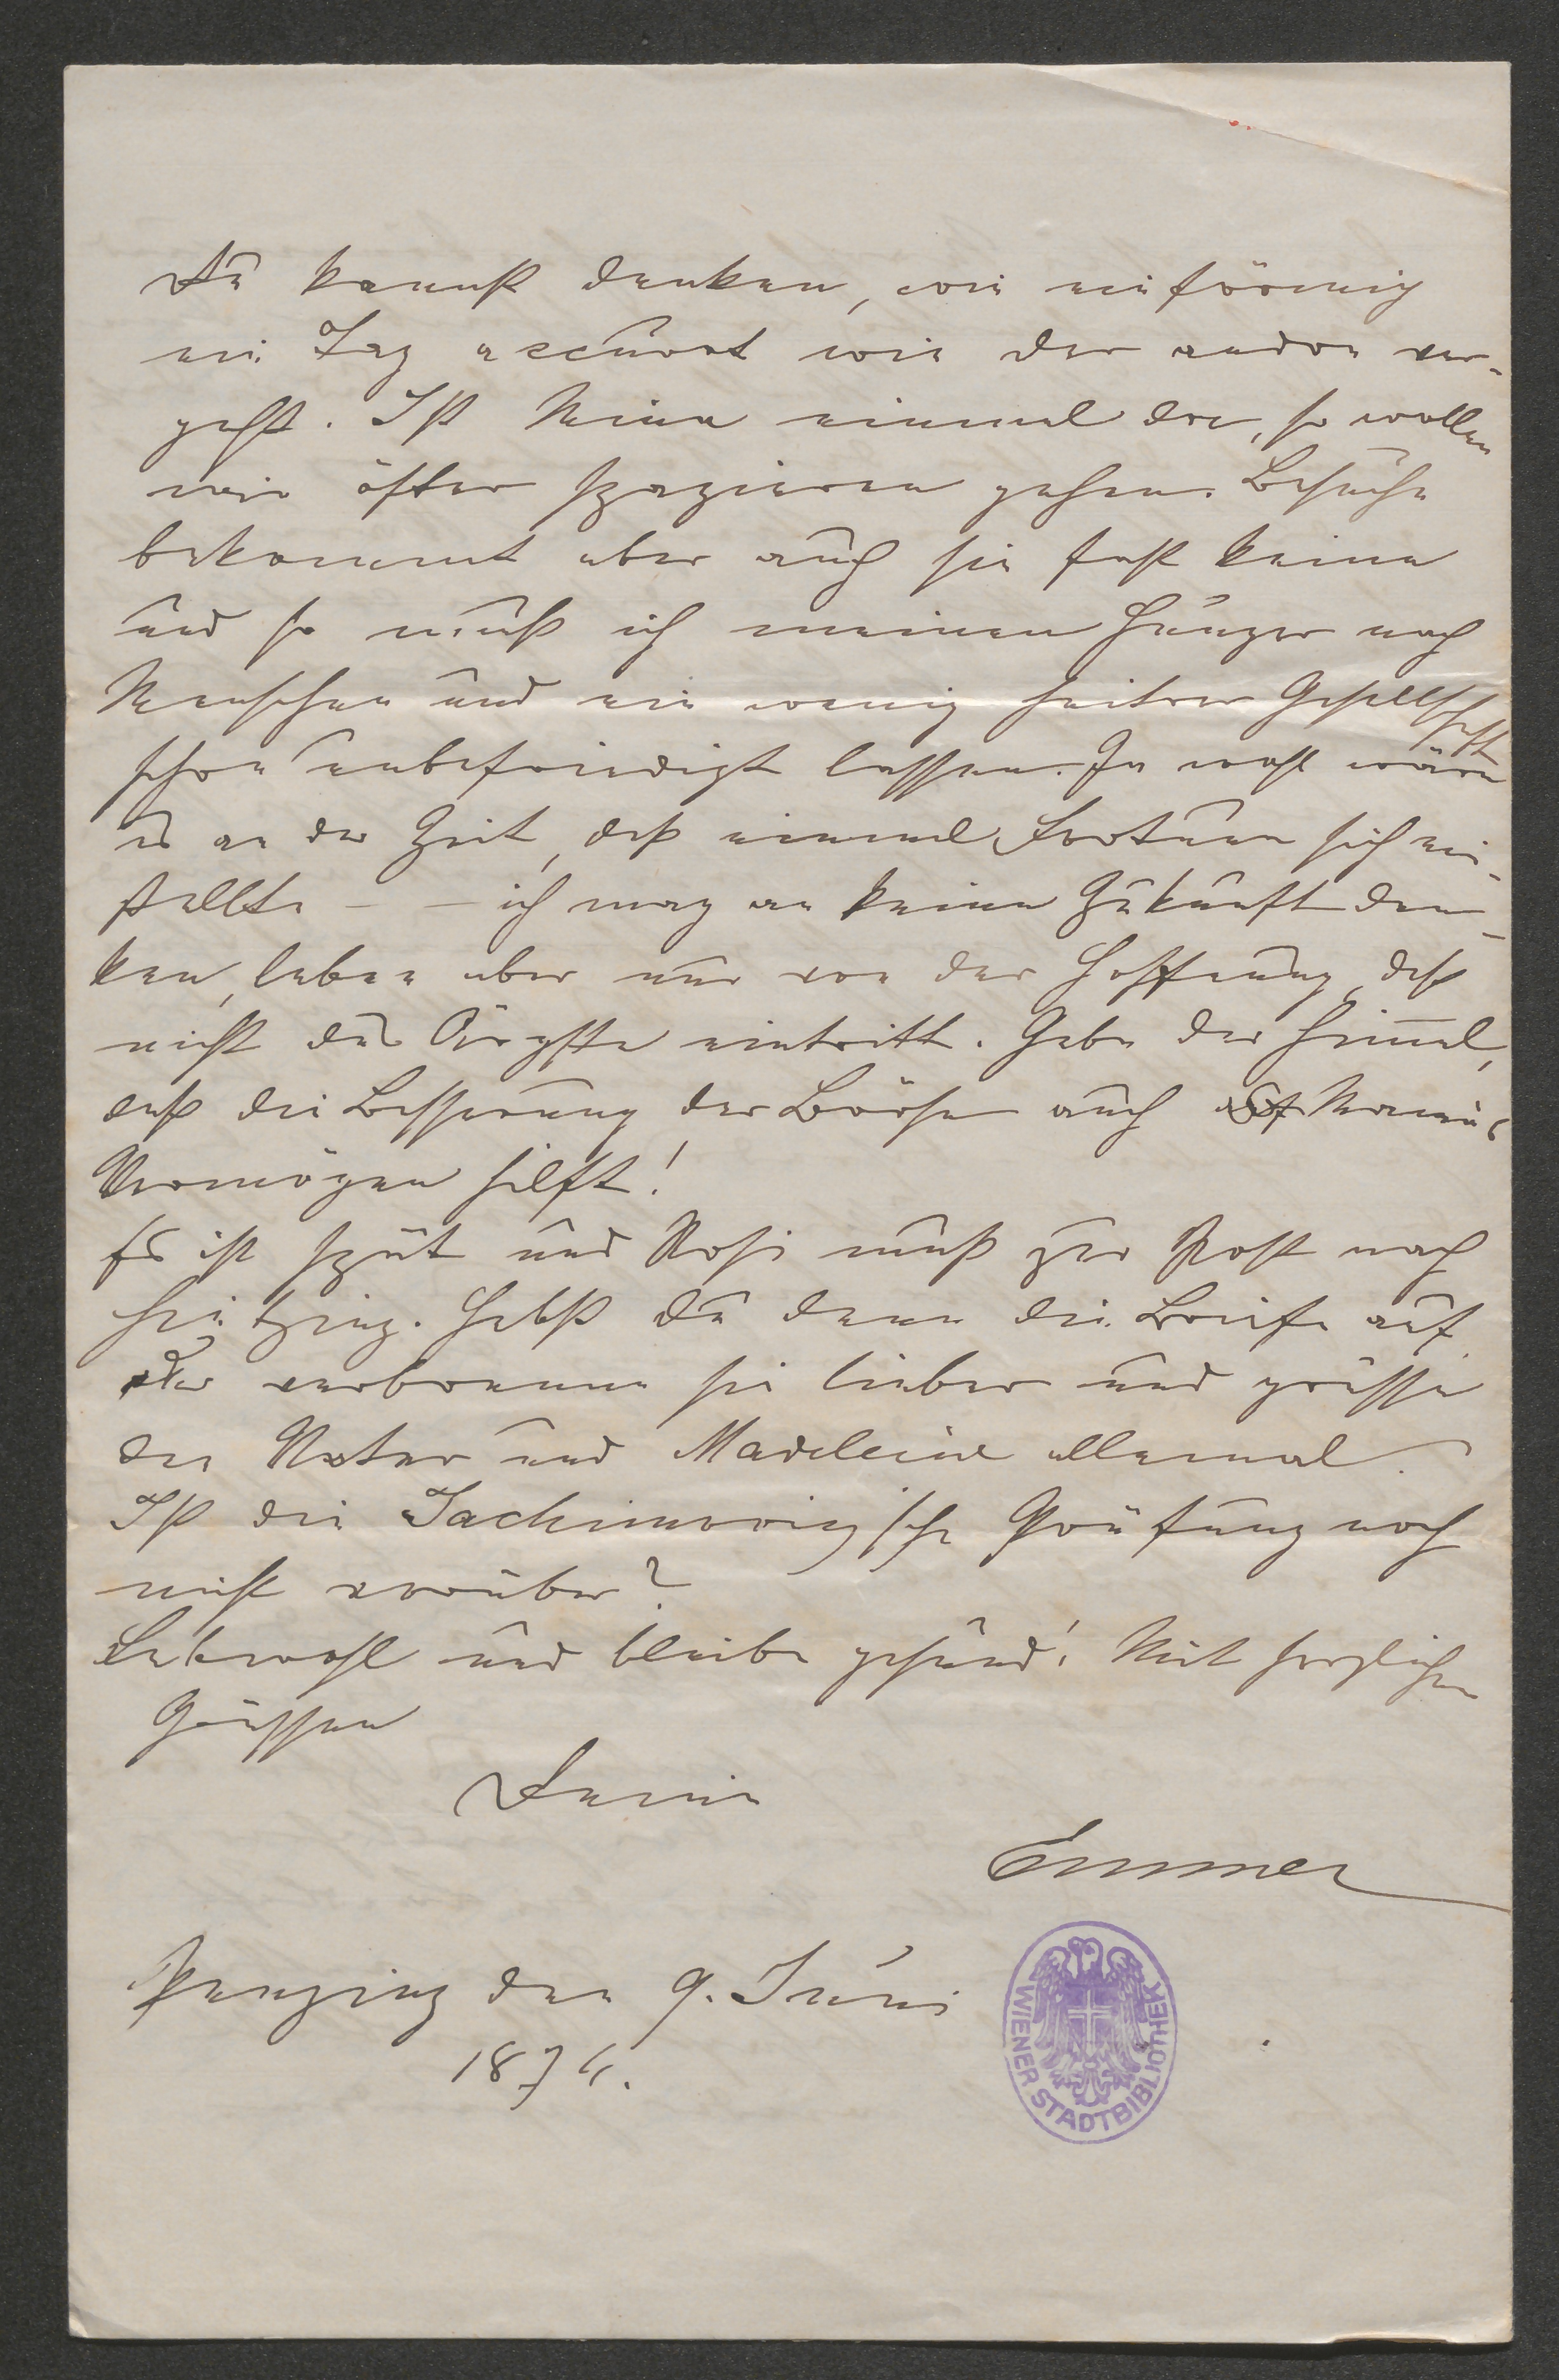 Du kannst denken, wie einförmig
ein Tag accurat wie der andre ver-
geht. Ist Mina einmal da, so wollen
wir öfter spazieren gehen. Besuche
bekommt aber auch sie fast keine
und so muß ich meinen Hunger nach
Menschen und ein wenig heitrer Gesellschaft
schon unbefriedigt lassen. Ja wohl wäre
es an der Zeit, daß einmal Fortuna sich ein-
stellte - - ich mag an keine Zukunft den-
ken, lebe aber nur von der Hoffnung, daß
nicht das Ärgste eintritt. Gebe der Himmel,
daß die Besserung der Börse auch
Vermögen hilft!
Es ist spät und Rosi muß zur Post nach
Hietzing. Hebst du denn die Briefe auf
oder verbrenne sie lieber und grüsse
den Vater und Madeleine allemal.
Ist die Prüfung noch
nicht vorüber?
Lebewohl und bleibe gesund! Mit herzlichen
Grüssen
Deine
Emmer
Penzing den 9. Juni
1874.
WIENER STADTBIBLIOTHEK